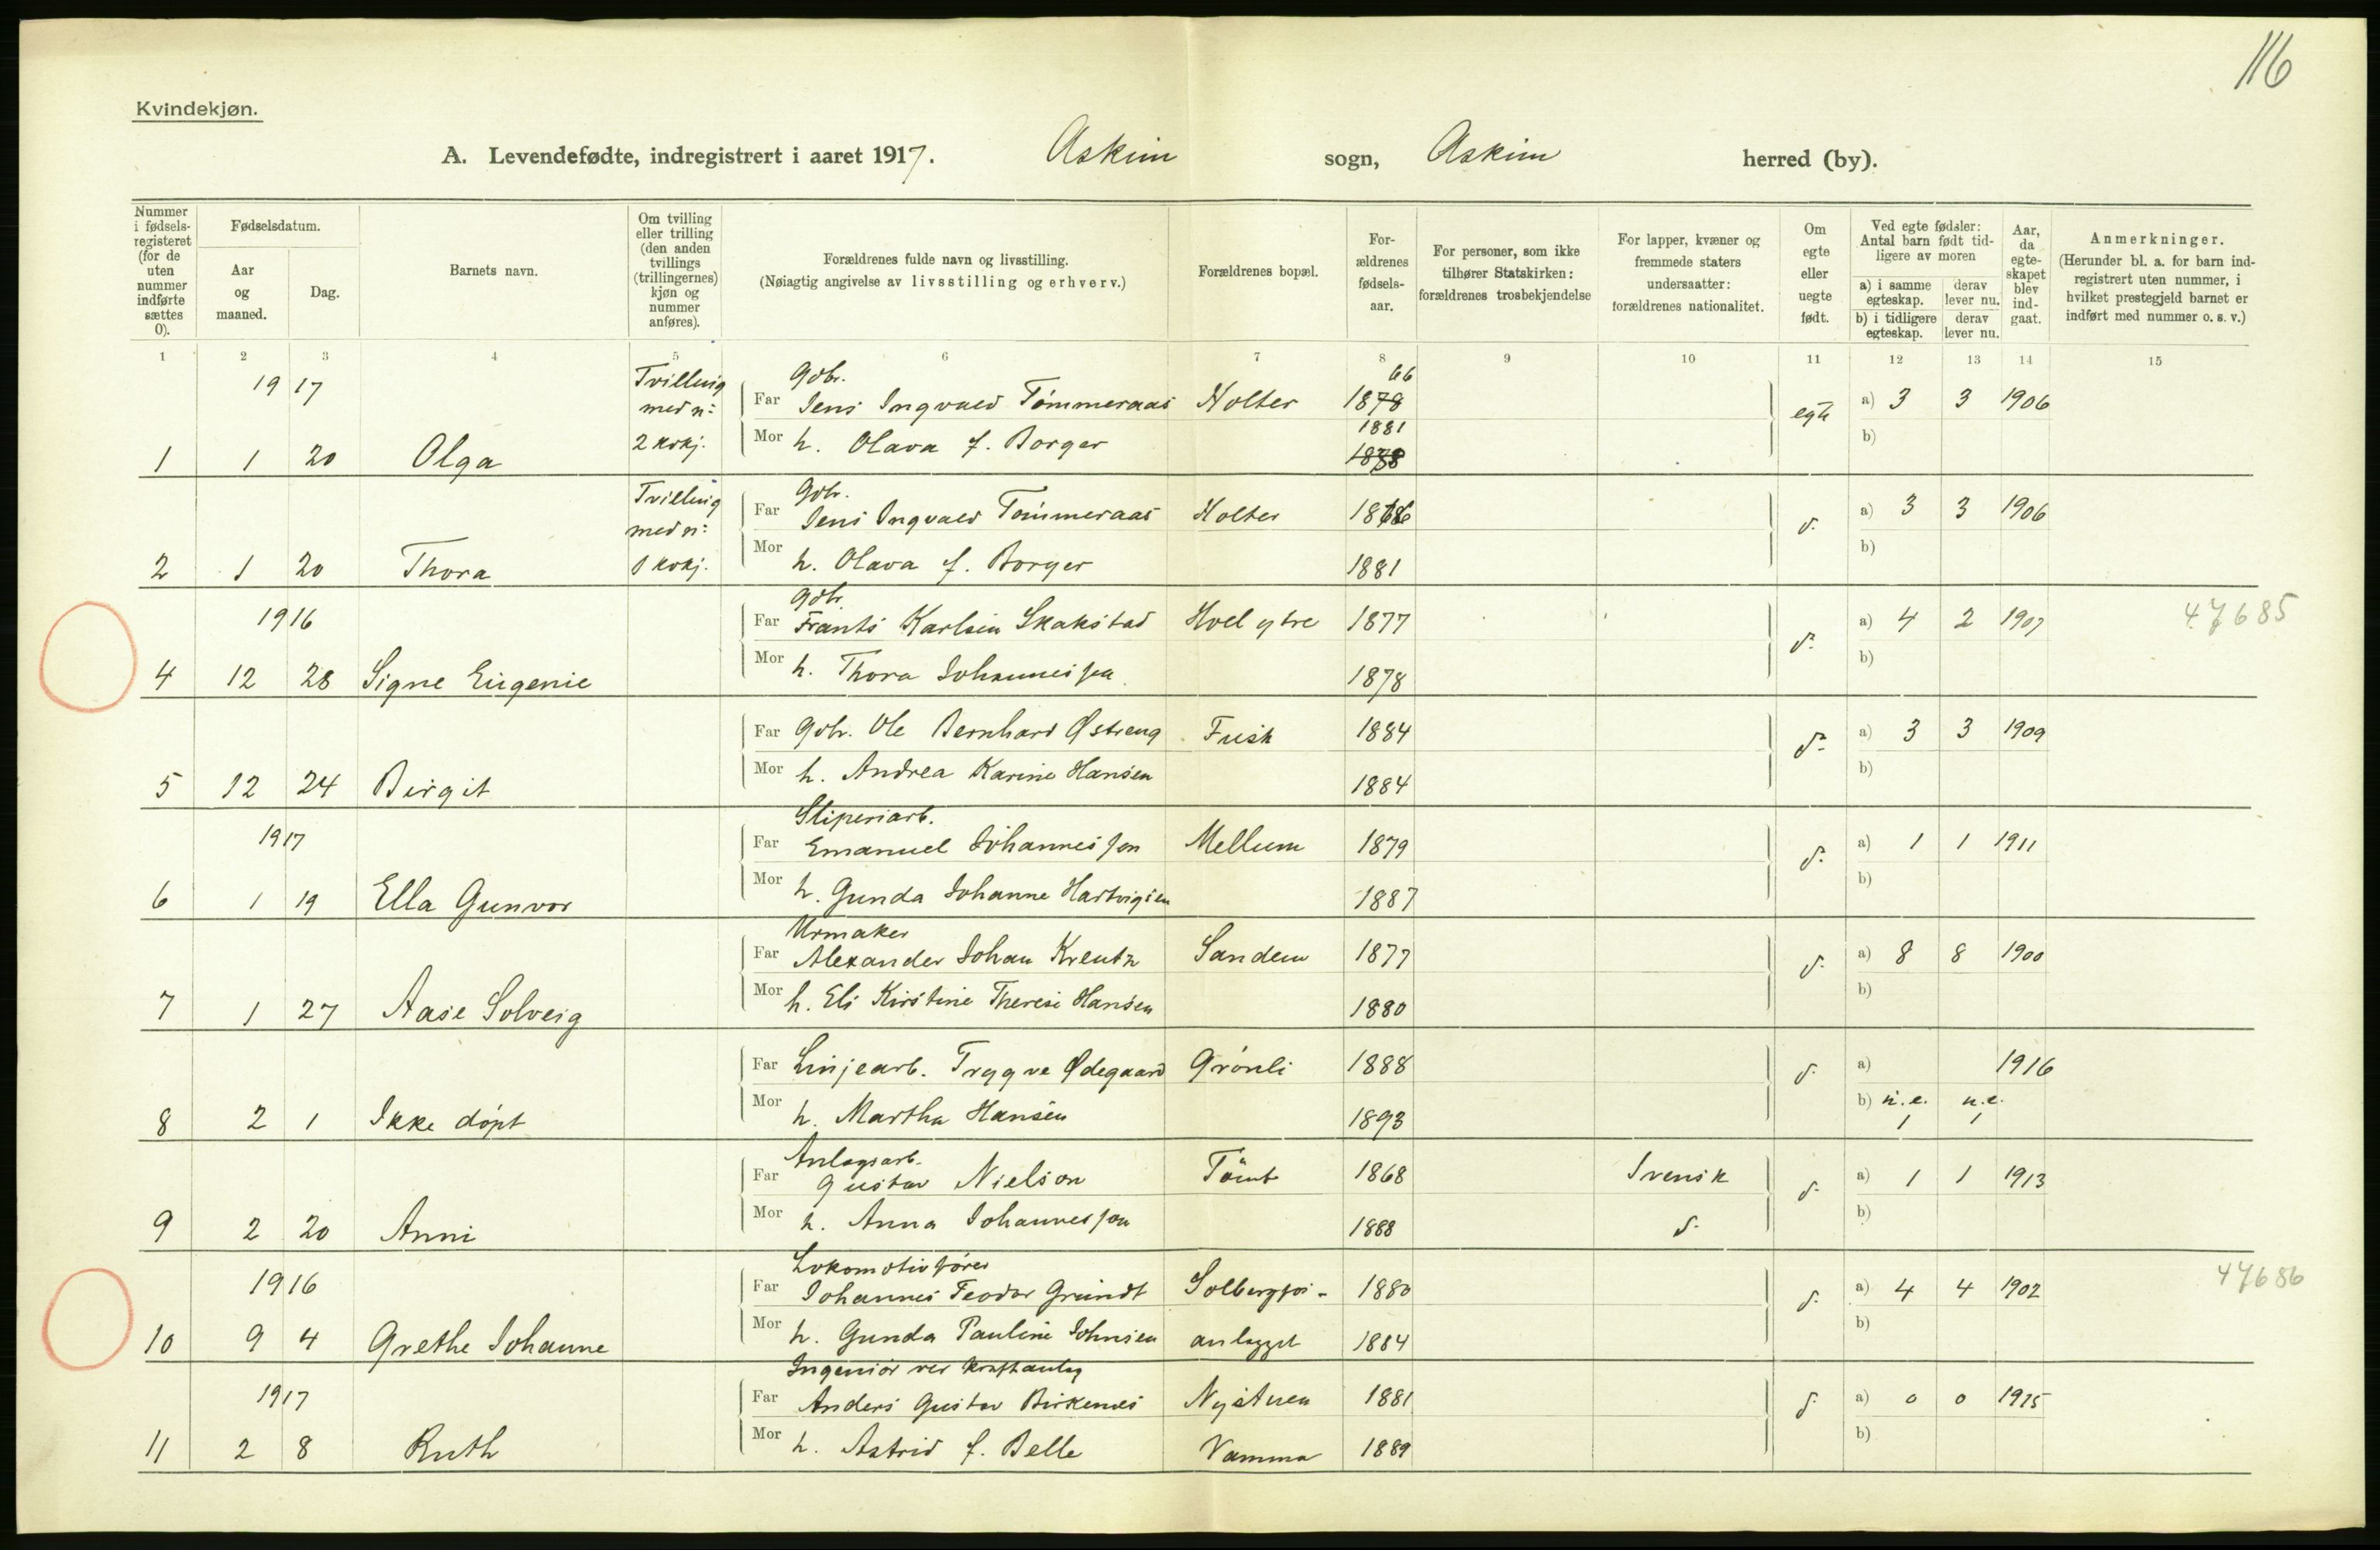 116
Kvindekjøn.
A. Levendefødte, indregistrert i aaret 1917. Askim sogn, Askim herred (by).
Nummer i fødsels-registeret (for de uten nummer indførte sættes 0).
Fødselsdatum.
Aar og maaned.
Dag.
Barnets navn.
Om tvilling eller trilling (den anden tvillings (trillingernes) kjøn og nummer anføres).
Forældrenes fulde navn og livsstilling.
(Nøiagtig angivelse av livsstilling og erhverv.)
Forældrenes bopæl.
For-ældrenes fødsels-aar.
For personer, som ikke tilhører Statskirken: forældrenes trosbekjendelse
For lapper, kvæner og fremmede staters undersaatter: forældrenes nationalitet.
Om egte eller uegte født.
Ved egte fødsler: Antal barn født tid-ligere av moren
a) i samme egteskap. derav lever nu.
b) i tidligere egteskap. derav lever nu.
Aar, da egte-skapet blev ind-gaat.
Anmerkninger.
(Herunder bl. a. for barn ind-registrert uten nummer, i hvilket prestegjeld barnet er indført med nummer o. s. v.)
1 2 3 4 5 6 7 8 9 10 11 12 13 14 15
1917 Tvilling Gdbr. 66
med n: Far Jens Ingvald Tømmeraas Holter 1878 egte a) 3 3 1906
2 kvkj. Mor h. Olava f. Borger 1881 b)
1 1 20 Olga
Tvilling Gdbr.
med n: Far Jens Ingvald Tømmeraas Holter 1866 d. a) 3 3 1906
2 1 20 Thora 1 kvkj. Mor h. Olava f. Borger 1881 b)
1916 Gdbr.
Far Frants Karlsen Skakstad Hoel ytre 1877 d. a) 4 2 1907 47685
4 12 28 Signe Eugenie Mor h. Thora Johannessen 1878 b)
Far Gdbr. Ole Bernhard Østreng Fusk 1884 d. a) 3 3 1909
5 12 24 Birgit Mor h. Andrea Karine Hansen 1884 b)
1917 Sliperiarb.
Far Emanuel Johannesson Mellum 1879 d. a) 1 1 1911
6 1 19 Ella Gunvor Mor h. Gunda Johanne Hartvigsen 1887 b)
Urmaker
Far Alexander Johan Kreutz Sandem 1877 d. a) 8 8 1900
7 1 27 Aase Solveig Mor h. Eli Kirstine Therese Hansen 1880 b)
Far Linjearb. Trygve Ødegaard Grønli 1888 d. a) 1916
8 2 1 Ikke døpt Mor h. Martha Hansen 1893 b) u.e. 1 u.e. 1
Anlegsarb.
Far Gustav Nielson Tømt 1868 Svensk d. a) 1 1 1913
9 2 20 Anni Mor h. Anna Johannesson 1888 d. b)
1916 Lokomotivfører
Far Johannes Teodor Grundt Solbergfos- 1880 d. a) 4 4 1902 47686
10 9 4 Grethe Johanne Mor h. Gunda Pauline Johnsen anlegget 1884 b)
1917 Ingeniør ved kraftanleg
Far Anders Gustav Birkenes Nystuen 1881 d. a) 0 0 1915
11 2 8 Ruth Mor h. Astrid f. Belle Vamma 1889 b)